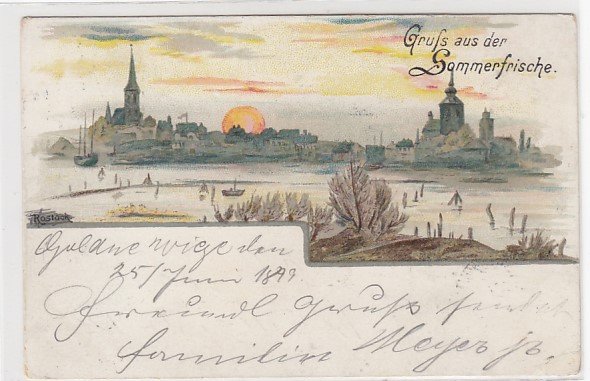 Gruss aus der
Sommerfrische.
Rostock
Goldne wige den
25/Juni 1899
Freundl Gruß sendet
familie Meyer jr.